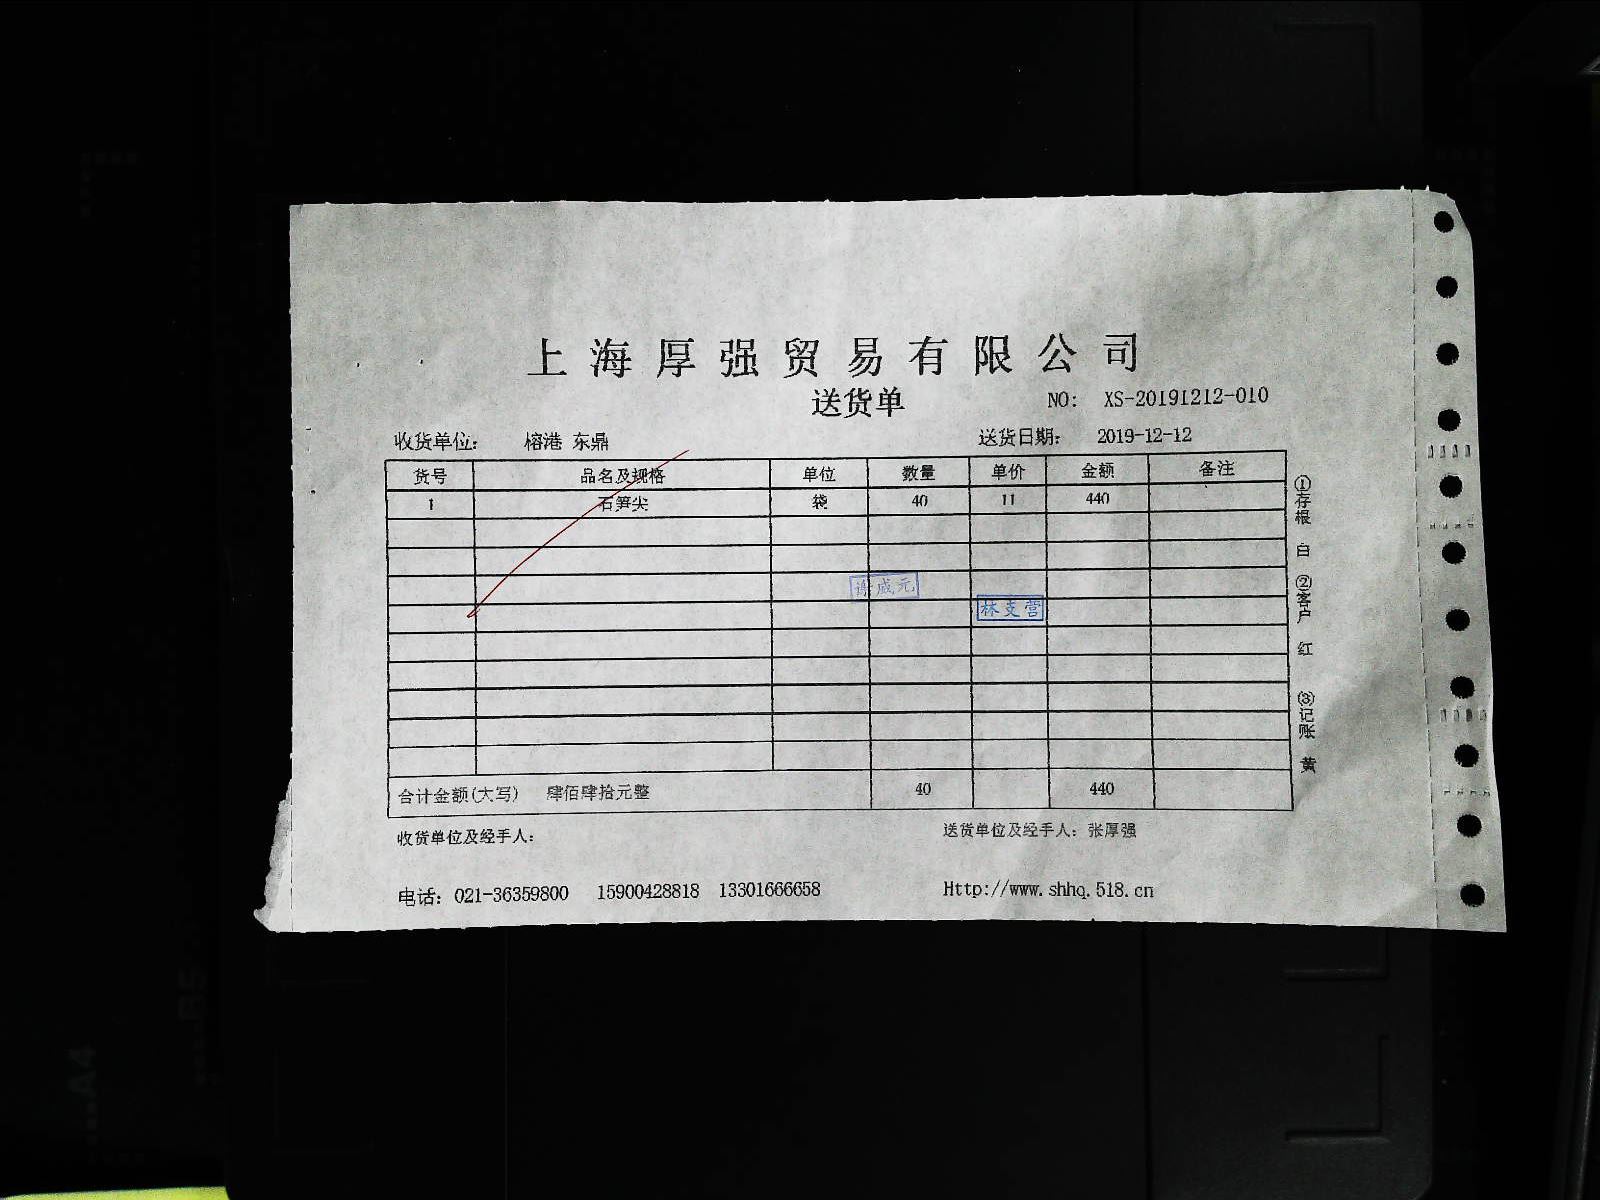 上海厚强贸易有限公司
送货单
NO: XS-20191212-010
收货单位: 榕港 东鼎 送货日期: 2019-12-12
货号 品名及规格 单位 数量 单价 金额 备注
1 石笋尖 袋 40 11 440
谢咸元
林支营
合计金额(大写) 肆佰肆拾元整 40 440
收货单位及经手人: 送货单位及经手人: 张厚强
电话: 021-36359800 15900428818 13301666658 Http://www.shhq.518.cn
①存根 白 ②客户 红 ③记账 黄
A4
B5